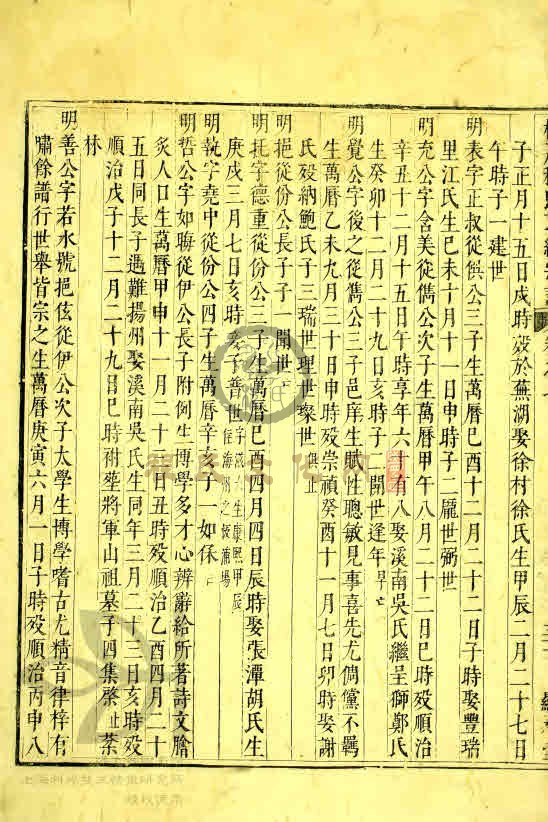 子正月十五日戌時歿於蕪湖娶徐村徐氏生甲辰二月二十七日
午時子一建世
明表字正叔從僎公三子生萬曆己酉十二月二十二日子時娶豐瑞
里江氏生己未十月十一日申時子二龎世弼世
明充公字含美從儁公次子生萬曆甲午八月二十二日巳時歿順治
辛丑十二月十五日午時享年六十有八娶溪南吳氏繼呈獅鄭氏
生癸卯十二月二十九日亥時子二開世逢年早亡
明覺公字後之從儁公三子邑庠生賦性聰敏見事喜先尤倜儻不羈
生萬曆乙未九月三十日申時歿崇禎癸酉十一月七日卯時娶謝
氏歿納鮑氏子三瑞世理世璨世俱止
明挹從份公長子子一開世
明托字德重從份公三子生萬曆己酉四月四日辰時娶張潭胡氏生
庚戌三月七日亥時子普世
明執字堯中從份公四子生萬曆辛亥子一如保
明哲公字如晦從伊公長子附例生博學多才心辨辭給所著詩文膾
炙人口生萬曆甲申十一月二十二日丑時歿順治乙酉四月二十
五日同長子遇難揚州娶溪南吳氏生同年三月二十三日亥時歿
順治戊子十二月二十九日巳時祔葬將軍山祖墓子四集棨止棻
林
明善公字若水號挹伭從伊公次子太學生博學嗜古尤精音律梓有
嘯餘譜行世舉皆宗之生萬曆庚寅六月一日子時歿順治丙申八